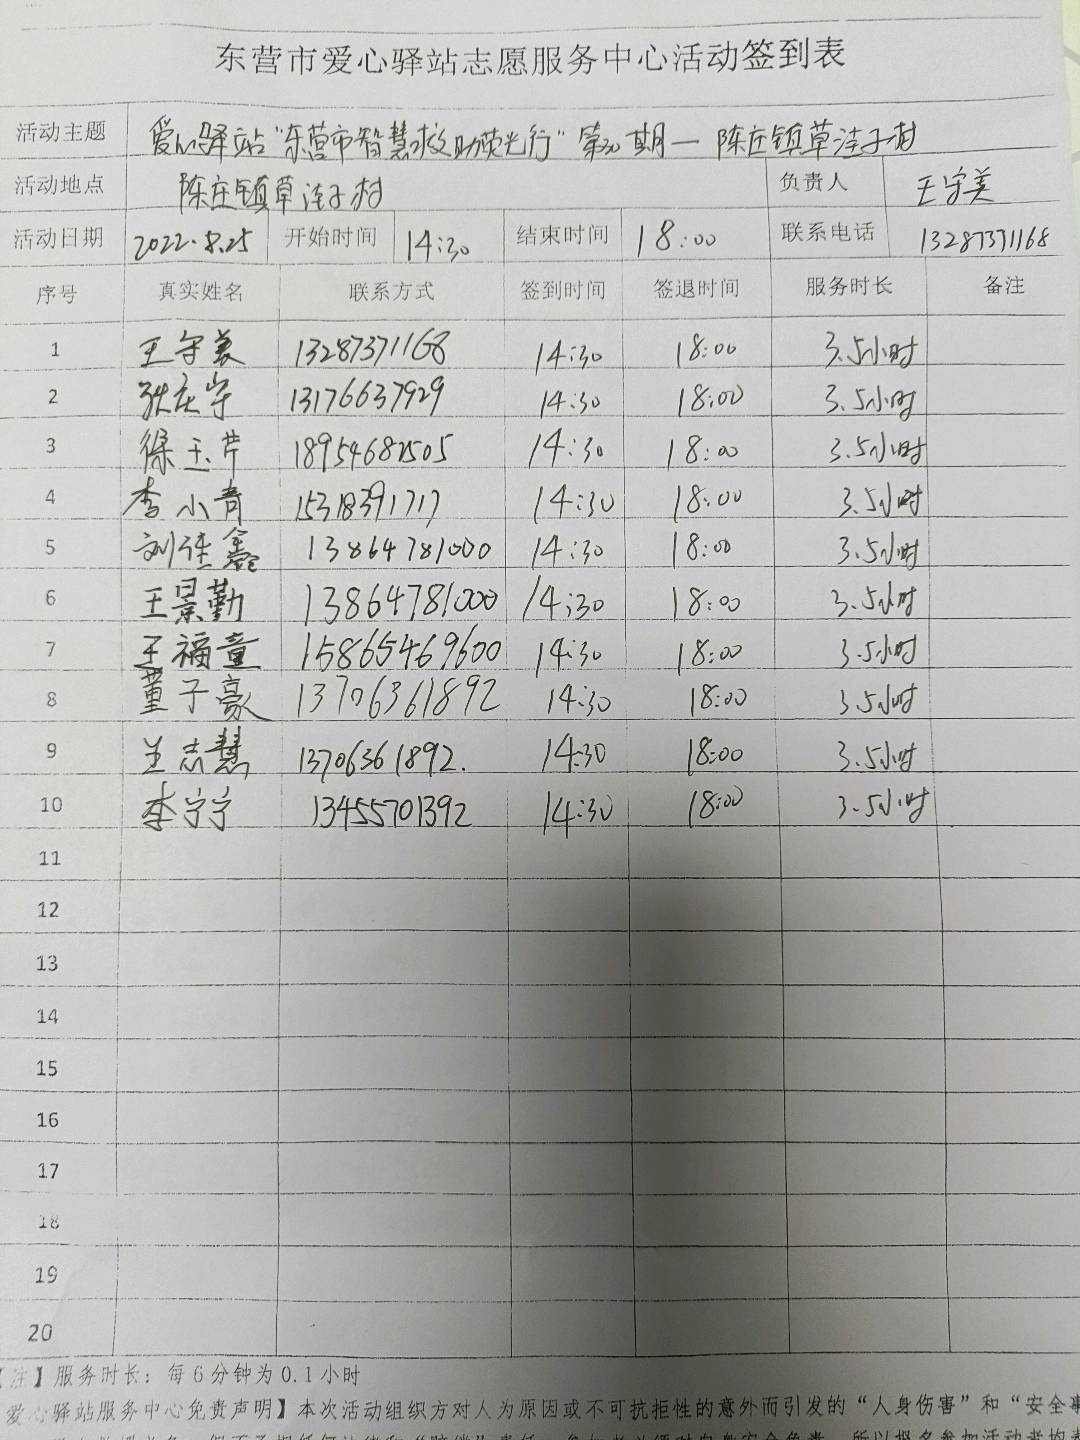 东营市爱心驿站志愿服务中心活动签到表
活动主题 爱心驿站“东营市智慧救助荧光行”第 期一陈庄镇草洼子村
活动地点 陈庄镇草洼子村 负责人 王守美
活动日期 2022.8.25 开始时间 14:30 结束时间 18:00 联系电话 13287371168
序号 真实姓名 联系方式 签到时间 签退时间 服务时长 备注
1 王守美 13287371168 14:30 18:00 3.5小时
2 张庆宇 13176637929 14:30 18:00 3.5小时
3 徐玉芹 14:30 18:00 3.5小时
4 李小青 15318391717 14:30 18:00 3.5小时
5 刘佳鑫 13864781000 14:30 18:00 3.5小时
6 王景勤 13864781000 14:30 18:00 3.5小时
7 王福童 15865469600 14:30 18:00 3.5小时
8 董子豪 13706361892 14:30 18:00 3.5小时
9 兰志慧 13706361892. 14:30 18:00 3.5小时
10 李宁宁 13455701392 14:30 18:00 3.5小时
11
12
13
14
15
16
17
18
19
20
【注】服务时长：每6分钟为0.1小时
爱心驿站服务中心免责声明】本次活动组织方对人为原因或不可抗拒性的意外而引发的“人身伤害”和“安全事